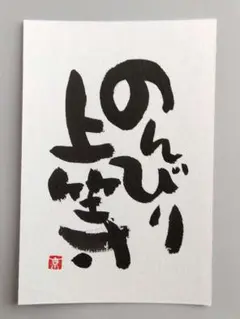 のんびり
上等